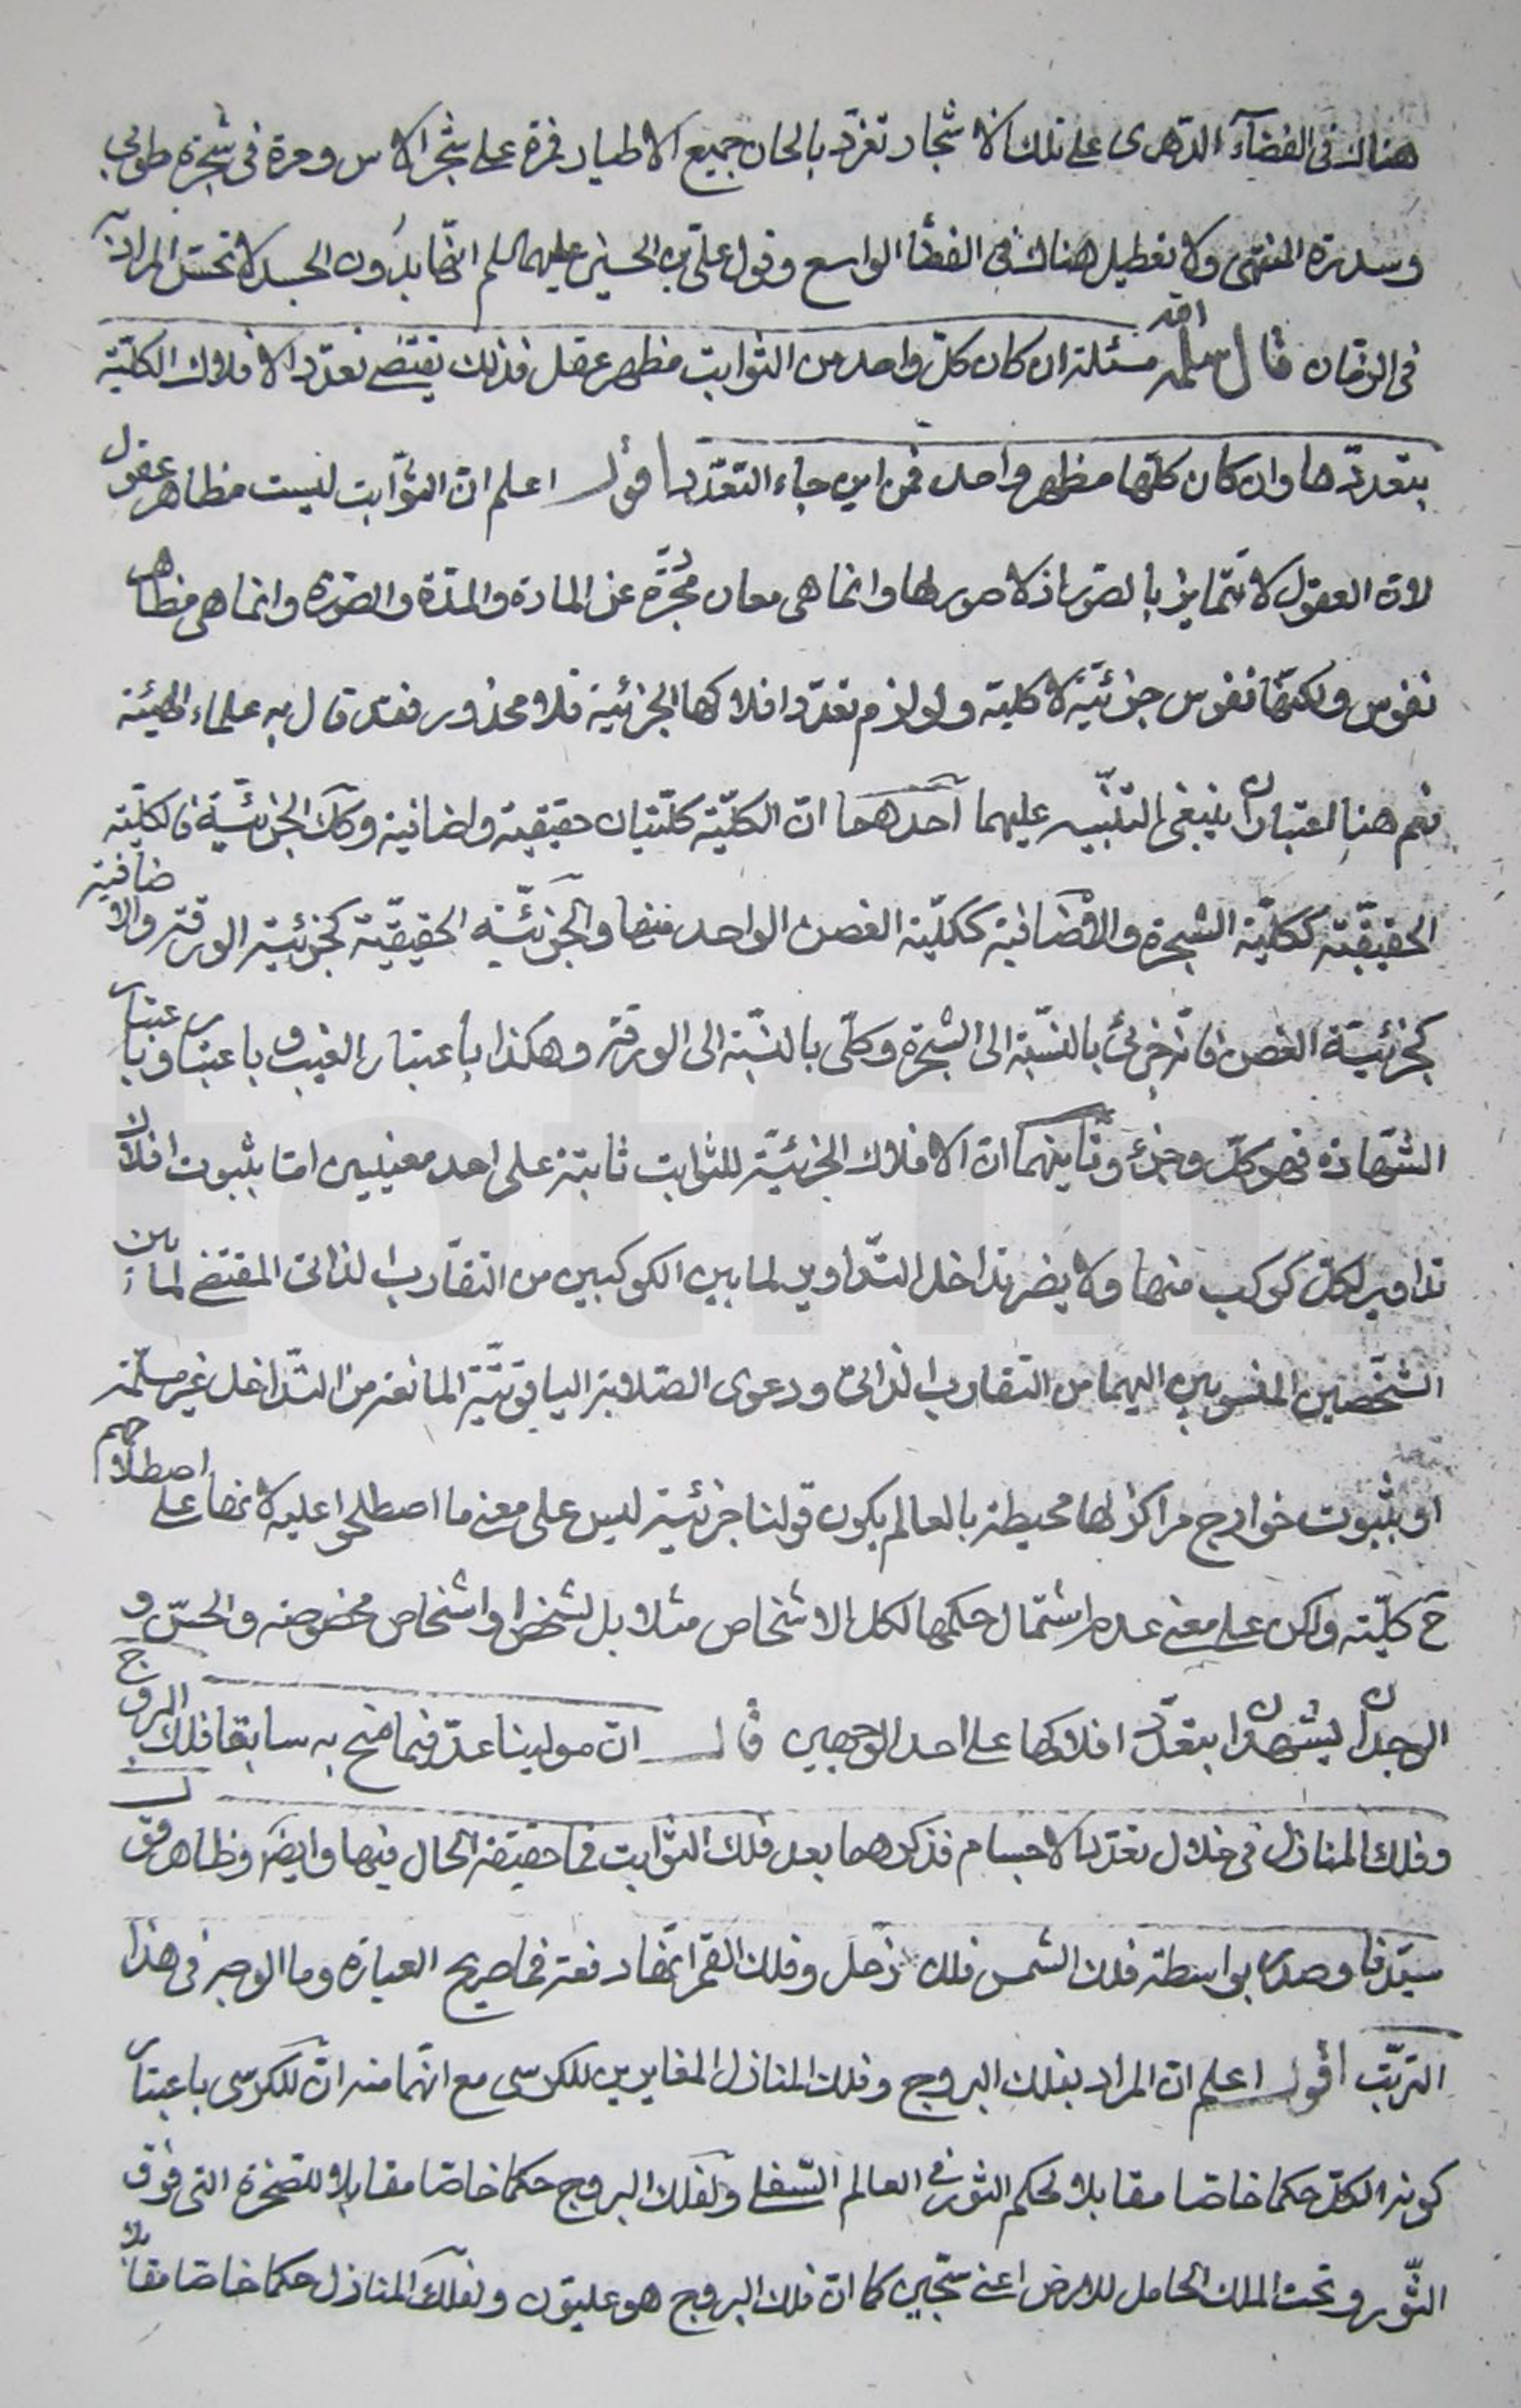 هناك فى الفضآء الدّهرى على تلك الاشجار تغرّد بالحان جميع الاطيار فمرة على شجر الاس ومرة فى شجرة طوبى
وسدرة المنتهى ولا تعطيل هناك فى الفضا الواسع وقول علىّ بن الحسين عليهما السلم انّها بدون الجسد لا تحسّ المراد به
فى الزمان قال سلمه الله مسئلة ان كان كلّ واحد من الثوابت مظهر عقل فذلك يقتضى تعدّد الافلاك الكليّة
بتعدّدها وان كان كلّها مظهر واحد فمن اين جاء التعدّد اقول اعلم انّ الثّوابت ليست مظاهر عقول
لانّ العقول لا تتمايز بالصّور اذ لا صور لها وانما هى معان مجرّدة عن المادة والمدّة والصّورة وانما هى مظاهر
نفوس ولكنّها نفوس جزئيّة لا كلية ولو لزم تعدّد افلاكها الجزئية فلا محذور فقد قال به علماء الهيئة
نعم هنا اعتباران ينبغى التنبيه عليهما احدهما انّ الكليّة كليّتان حقيقية واضافية وكذلك الجزئيّة فالكليّة
الحقيقيّة ككليّة الشجرة والاضافية ككليّة الغصن الواحد منها والجزئيّة الحقيقيّة كجزئية الورقة والاضافية
كجزئيّة الغصن فانّه جزئى بالنّسبة الى الشجرة وكلّى بالنسّبة الى الورقة وهكذا باعتبار الغيب و باعتبار
الشهادة فهو كلّ وجزء وثانيهما انّ الافلاك الجزئيّة للثوابت ثابتة على احد معنيين امّا بثبوت افلاك
تداوير لكلّ كوكب منها ولا يضر تداخل التّداوير لما بين الكوكبين من التقارب الذاتى المقتضى لما بين
الشّخصين المنسوبين اليهما من التقارب الذاتى ودعوى الصّلابة الياقوتيّة المانعة من التّداخل غير مسلّمة
او بثبوت خوارج مراكز لها محيطة بالعالم يكون قولنا جزئية ليس على معنى ما اصطلحوا عليه لانها على اصطلاحهم
ح كليّة ولكن على معنى عدم اشتمال حكمها لكل الاشخاص مثلا بل لشخص او اشخاص مخصوصة والحسّ و
الوجدان يشهدان بتعدّد افلاكها على احد الوجهين قال انّ مولينا عدّ فيما منح به سابقا فلك البروج
وفلك المنازل فى خلال تعدّد الاجسام فذكرهما بعد فلك الثوابت فما حقيقة الحال فيها وايضا وظاهر قول
سيّدنا وصدر بواسطة فلك الشمس فلك زحل وفلك القمر انّها دفعة فما صريح العبارة وما الوجه فى هذا
التّرتّب اقول اعلم انّ المراد بفلك البروج وفلك المنازل المغايرين للكرسى مع انّهما منه انّ للكرسى باعتبار
كونه الكلّ حكما خاصّا مقابلا لحكم الثور فى العالم السّفلى ولفلك البروج حكما خاصّا مقابلا للصّخرة التى فوق
الثّور وتحت الملك الحامل للارض اعنى سجّين كما انّ فلك البروج هو عليّون ولفلك المنازل حكما خاصّا مقابلا